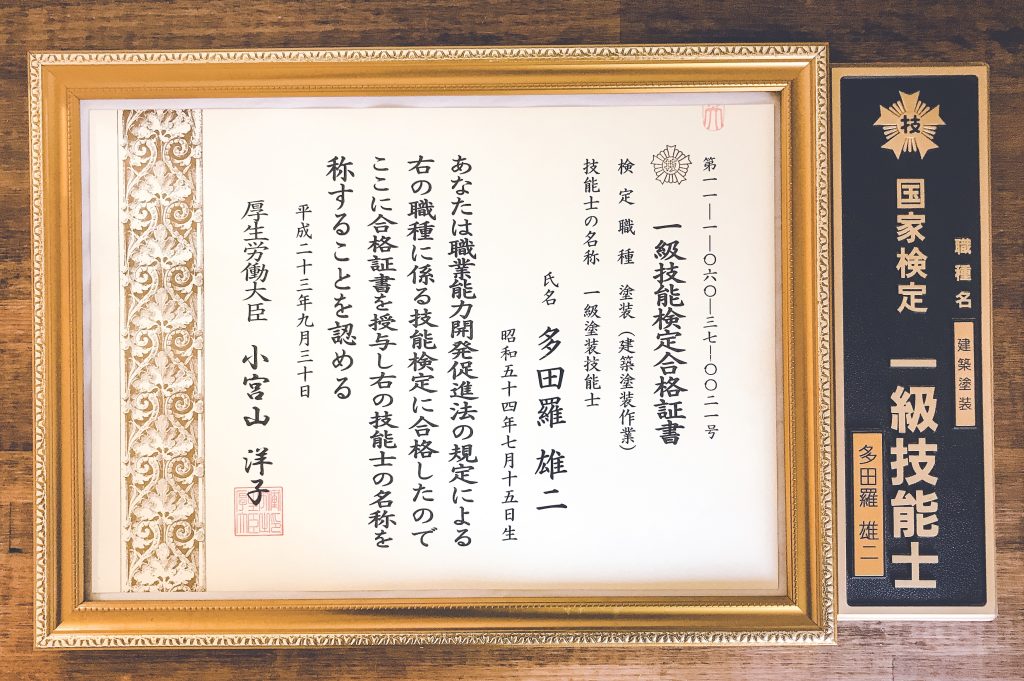 第一一―一―〇六〇―三七―〇〇二一号
一級技能検定合格証書
検定職種 塗装(建築塗装作業)
技能士の名称 一級塗装技能士
氏名 多田羅 雄二
昭和五十四年七月十五日生
あなたは職業能力開発促進法の規定による
右の職種に係る技能検定に合格したので
ここに合格証書を授与し右の技能士の名称を
称することを認める
平成二十三年九月三十日
厚生労働大臣 小宮山 洋子
技
職種名 建築塗装
国家検定 一級技能士
多田羅 雄二